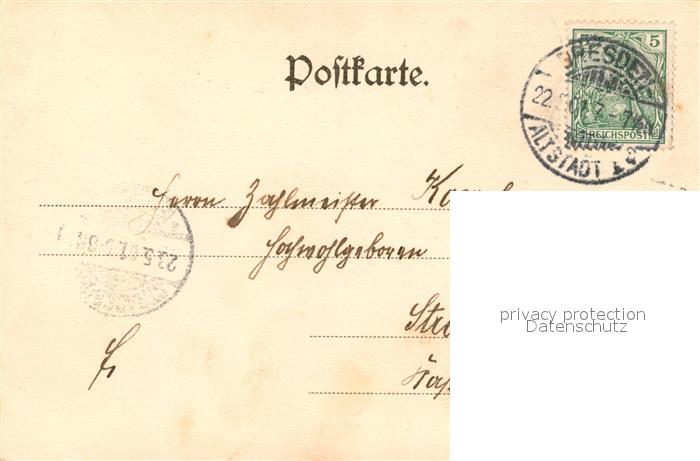 Postkarte.
5
REICHSPOST
DRESDEN
22.5.01.
ALTSTADT
Herrn Zahlmeister
Hochwohlgeboren
23.5.01.
privacy protection
Datenschutz